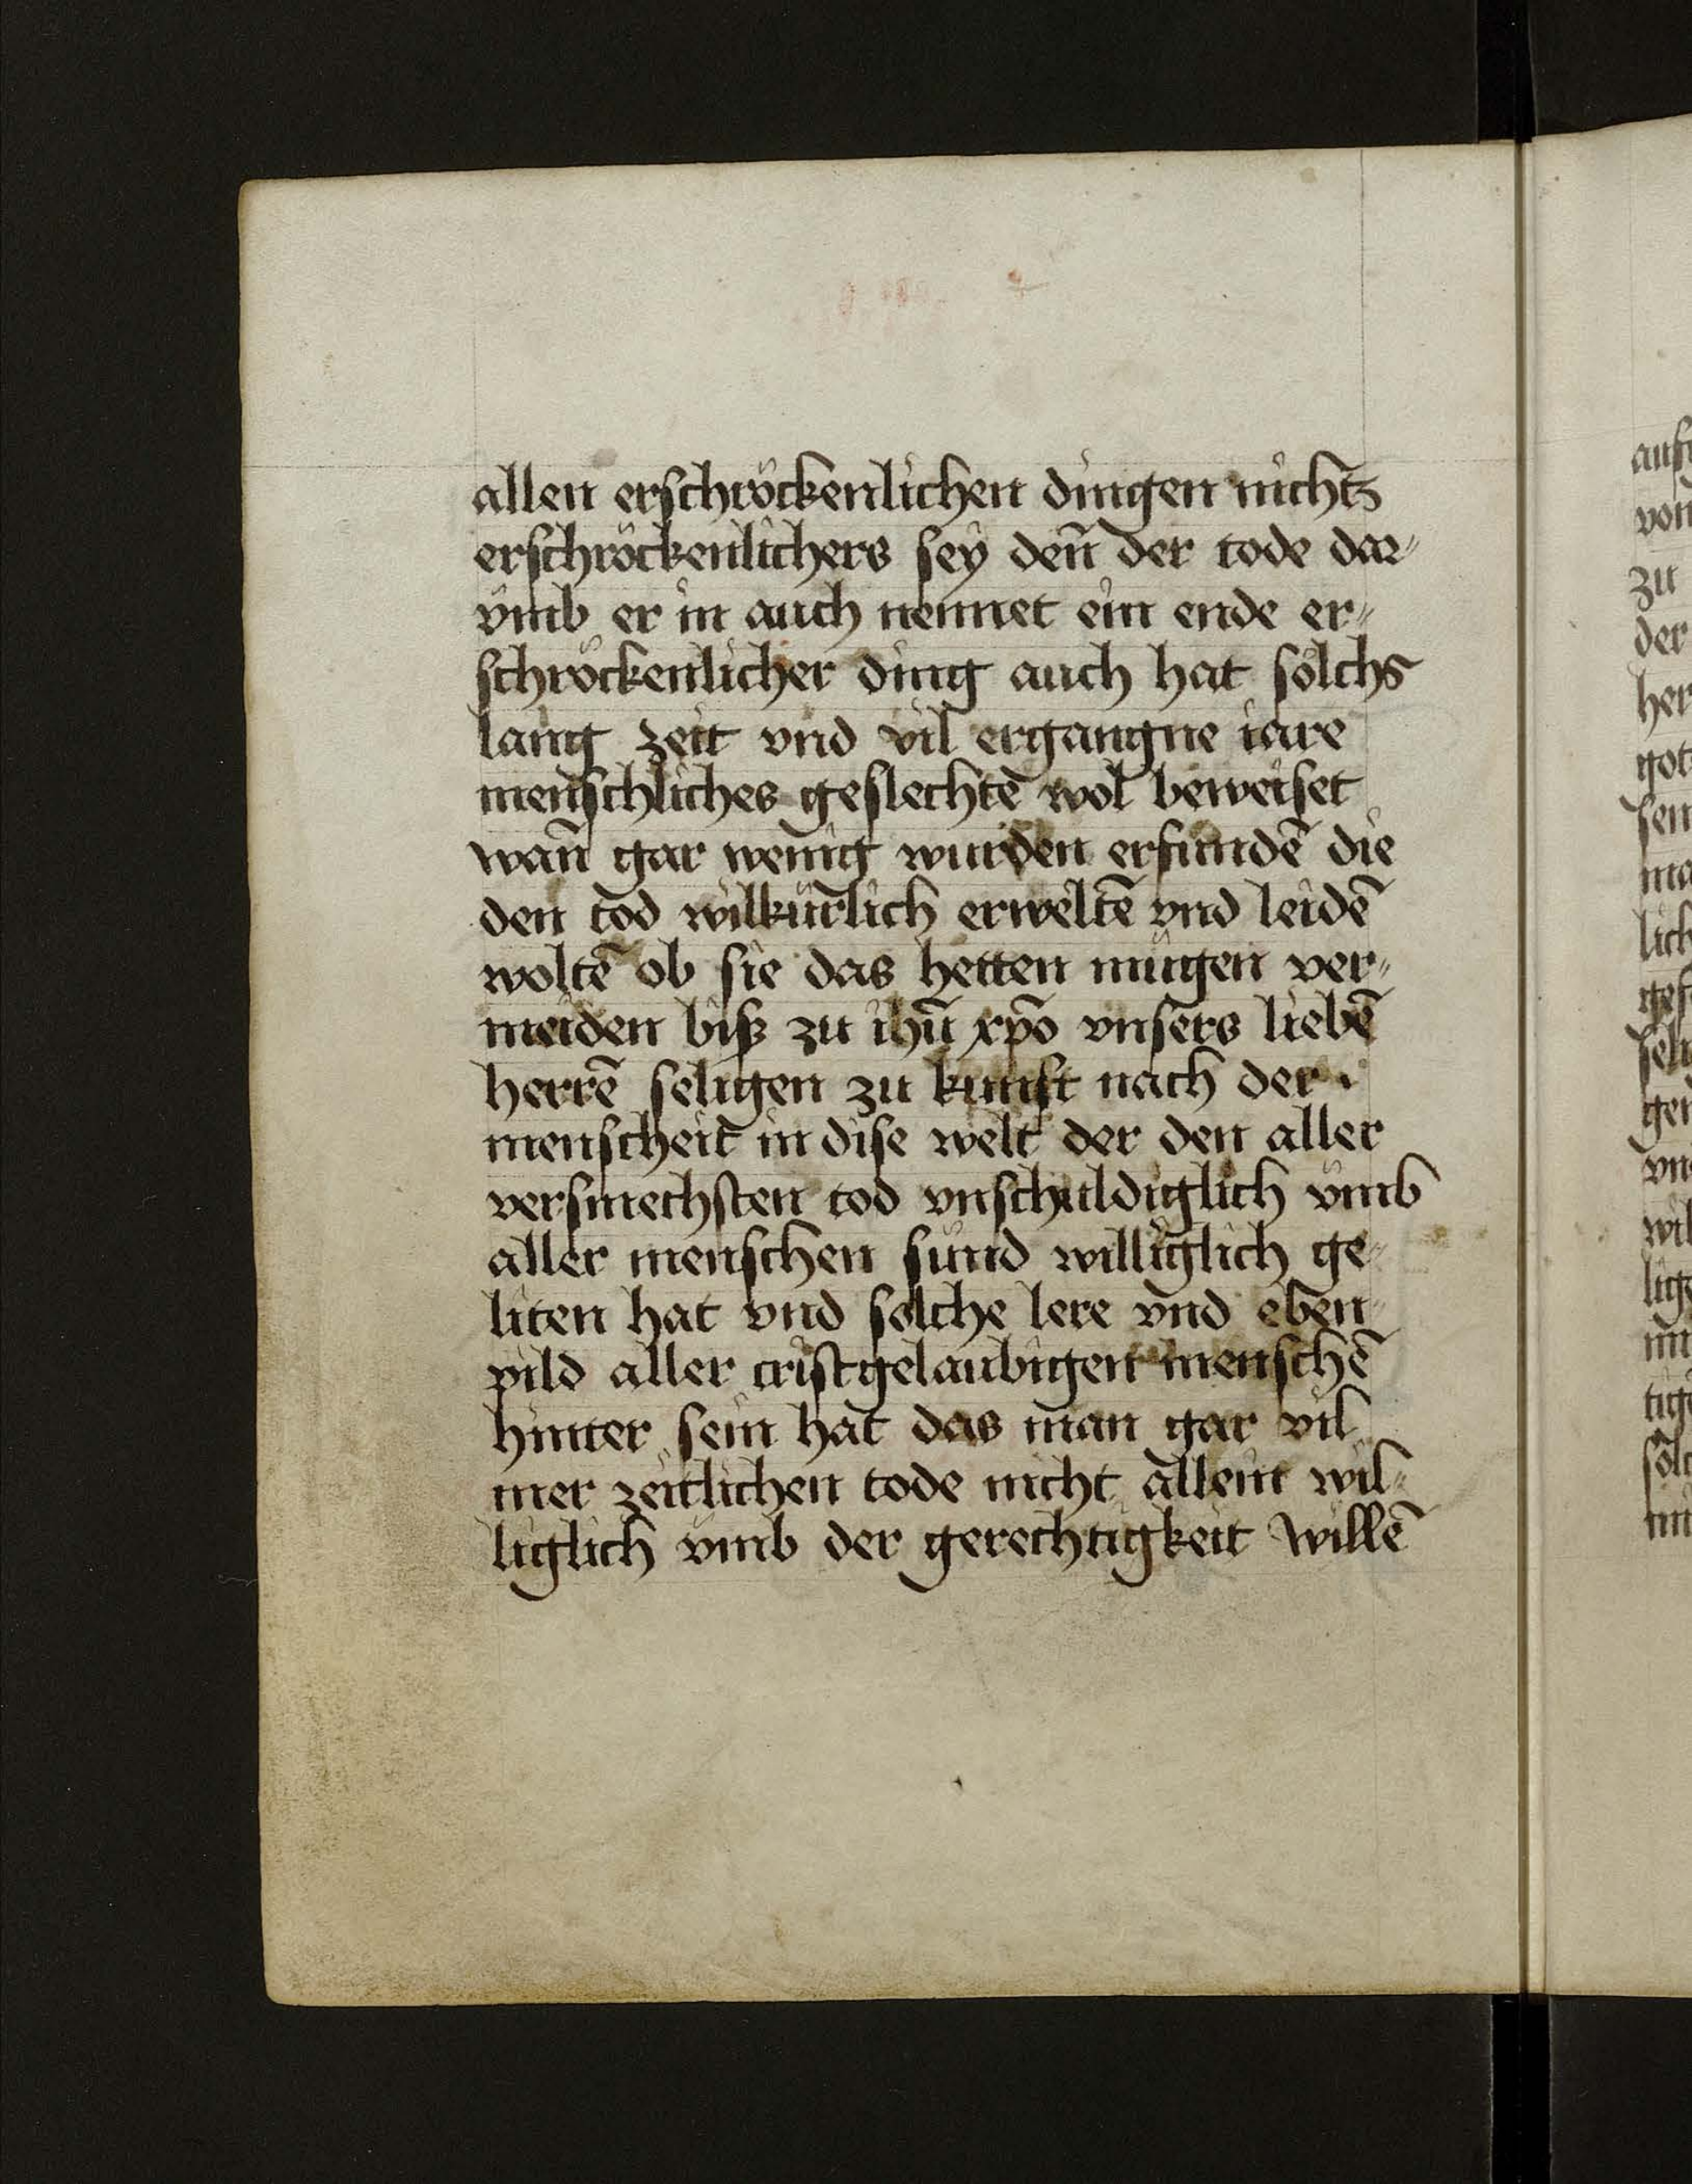 allen erschröckenlichen dingen nichts
erschröckenlichers sey den̄ der tode dar⸗
vmb er in auch nennet ein ende er⸗
schröckenlicher ding auch hat sölchs
lang zeit vnd vil ergangne iare
menschliches geslechtē wol beweiset
wan̄ gar wenig wurden erfundē die
den tod wilkürlich erweltē vnd leidē
woltē ob sie das hetten mügen ver⸗
meiden biß zu ihū xp̄o vnsers liebē
herrē seligen zu kunft nach der
menscheit in dise welt der den aller
versmechsten tod vnschuldiglich vmb
aller menschen sünd williglich ge⸗
liten hat vnd solche lere vnd eben
pild aller cristgelaubigen menschē
hinter sein hat das man gar vil
mer zeitlichen tode nicht allein wil⸗
liglich vmb der gerechtigkeit willē